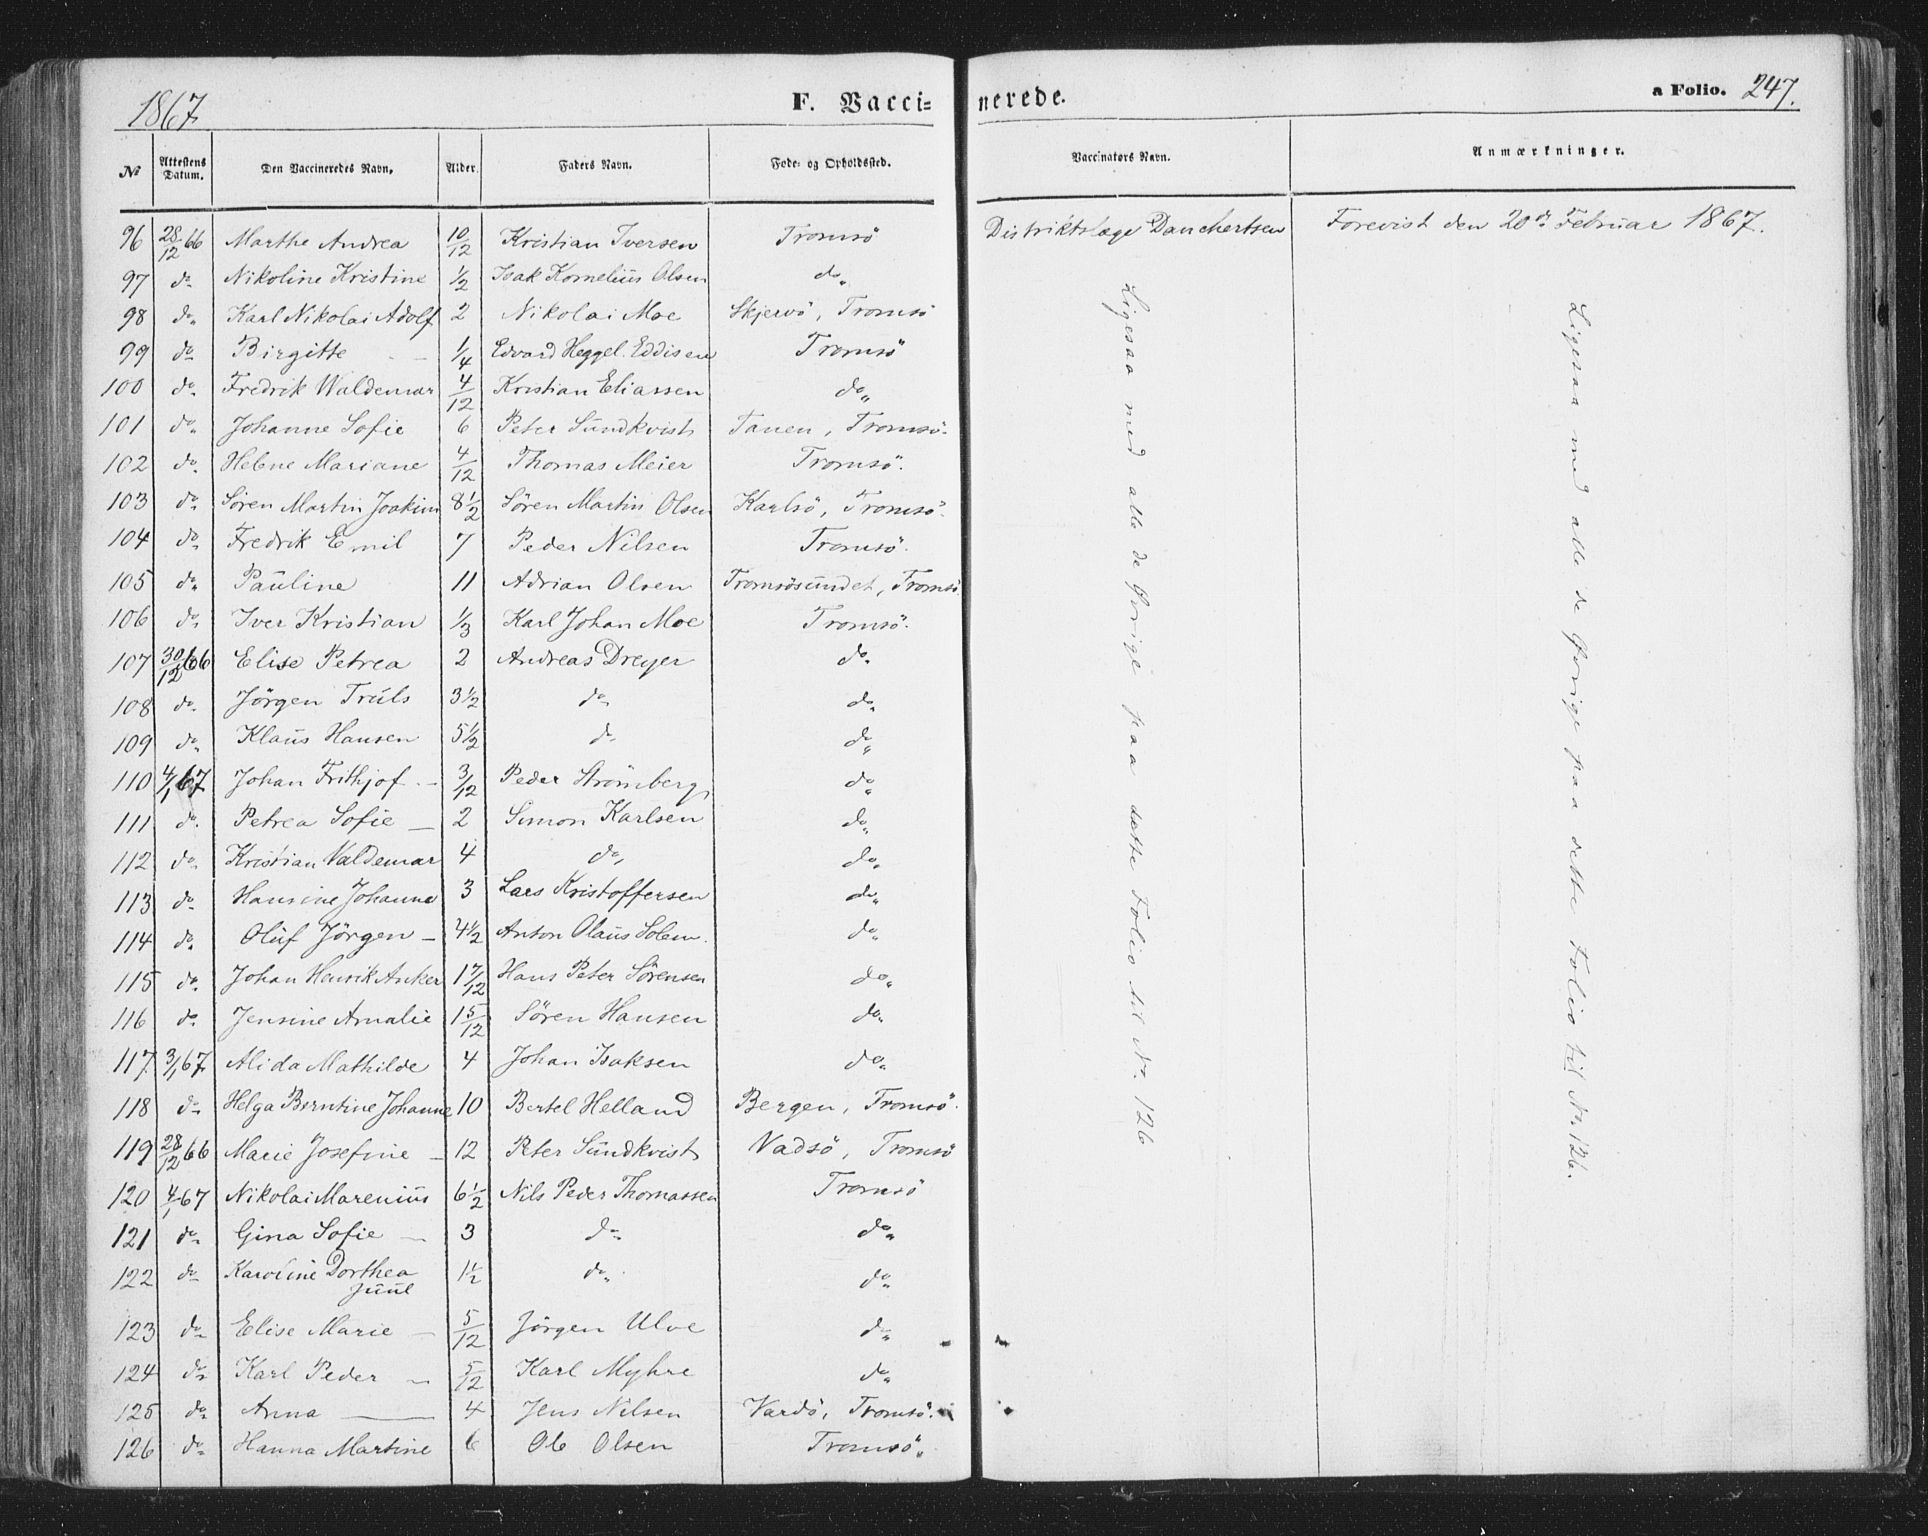 1867.
F. Vacci= nerede.
a Folio. 247.
№ Attestens Datum. Den Vaccineredes Navn. Alder. Faders Navn. Føde- og Opholdssted. Vaccinators Navn. Anmærkninger.
96 28/12 66 Marthe Andrea 10/12 Kristian Iversen Tromsö Distriktslæge Danchertsen Forevist den 20de Februar 1867.
97 do Nikoline Kristine 1/2 Isak Kornelius Olsen do
98 do Karl Nikolai Adolf 2 Nikolai Moe Skjervö, Tromsö
99 do Birgitte — 1/4 Edvard Heggel. Eddisen Tromsö
100 do Fredrik Waldemar 4/12 Kristian Eliassen do
101 do Johanne Sofie 6 Peter Sundkvist Tanen, Tromsö.
102 do Helene Mariane 4/12 Thomas Meier Tromsö.
103 do Sören Martin Joakim 8 1/2 Sören Martin Olsen Karlsö, Tromsö.
104 do Fredrik Emil 7 Peder Nilsen Tromsö.
105 do Pauline 11 Adrian Olsen Tromsösundet, Tromsö
106 do Iver Kristian 1/3 Karl Johan Moe Tromsö.
107 30/12 66 Elise Petrea 2 Andreas Dreyer do
108 do Jörgen Truls 3 1/2 do do
109 do Klaus Hansen 5 1/2 do do
110 4/1 67 Johan Frithjof — 3/12 Peder Strömberg do
111 do Petrea Sofie — 2 Simon Karlsen do
112 do Kristian Valdemar 4 do do
113 do Hansine Johanne 3 Lars Kristoffersen do
114 do Oluf Jörgen — 4 1/2 Anton Olaus Solem. do
115 do Johan Henrik Anker 1 7/12 Hans Peter Sörensen do
116 do Jensine Amalie 1 5/12 Sören Hansen do
117 3/1 67 Alida Mathilde 4 Johan Isaksen do
118 do Helga Berntine Johanne 10 Bertel Helland Bergen, Tromsö.
119 28/12 66 Marie Josefine — 12 Peter Sundkvist Vadsö, Tromsö
120 4/1 67 Nikolai Marenius 6 1/2 Nils Peder Thomassen Tromsö
121 do Gina Sofie — 3 do do
122 do Karoline Dorthea 1 1/2 do do
Juul
123 do Elise Marie — 5/12 Jörgen Ulve do
124 do Karl Peder — 5/12 Karl Myhre do
125 do Anna — 4 Jens Nilsen Vardö, Tromsö.
126 do Hanna Martine 6 Ole Olsen Tromsö
Ligesaa med alle de Øvrige paa dette Folio til Nr. 126
Ligesaa med alle de Øvrige paa dette Folio til Nr 126.